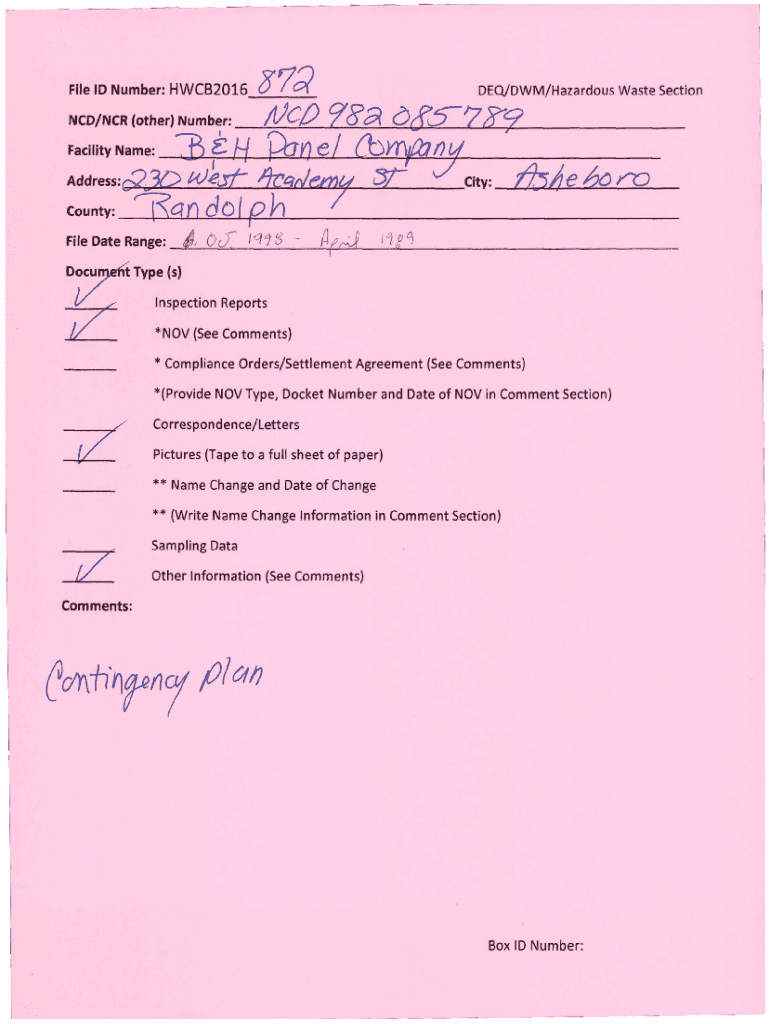 File ID Number: HWCB2016 872
DEQ/DWM/Hazardous Waste Section
NCD/NCR (other) Number: NCD 982 085 789
Facility Name: B & H Panel Company
Address: 230 West Academy St City: Asheboro
County: Randolph
File Date Range: 1993 - April 1989
Document Type (s)
Inspection Reports
*NOV (See Comments)
* Compliance Orders/Settlement Agreement (See Comments)
*(Provide NOV Type, Docket Number and Date of NOV in Comment Section)
Correspondence/Letters
Pictures (Tape to a full sheet of paper)
** Name Change and Date of Change
** (Write Name Change Information in Comment Section)
Sampling Data
Other Information (See Comments)
Comments:
Contingency plan
Box ID Number: